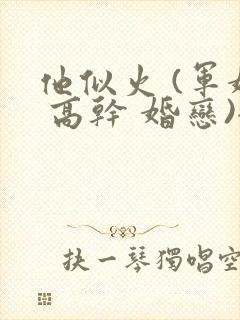 他似火 (軍
高幹 婚戀)
抉一琴獨唱空